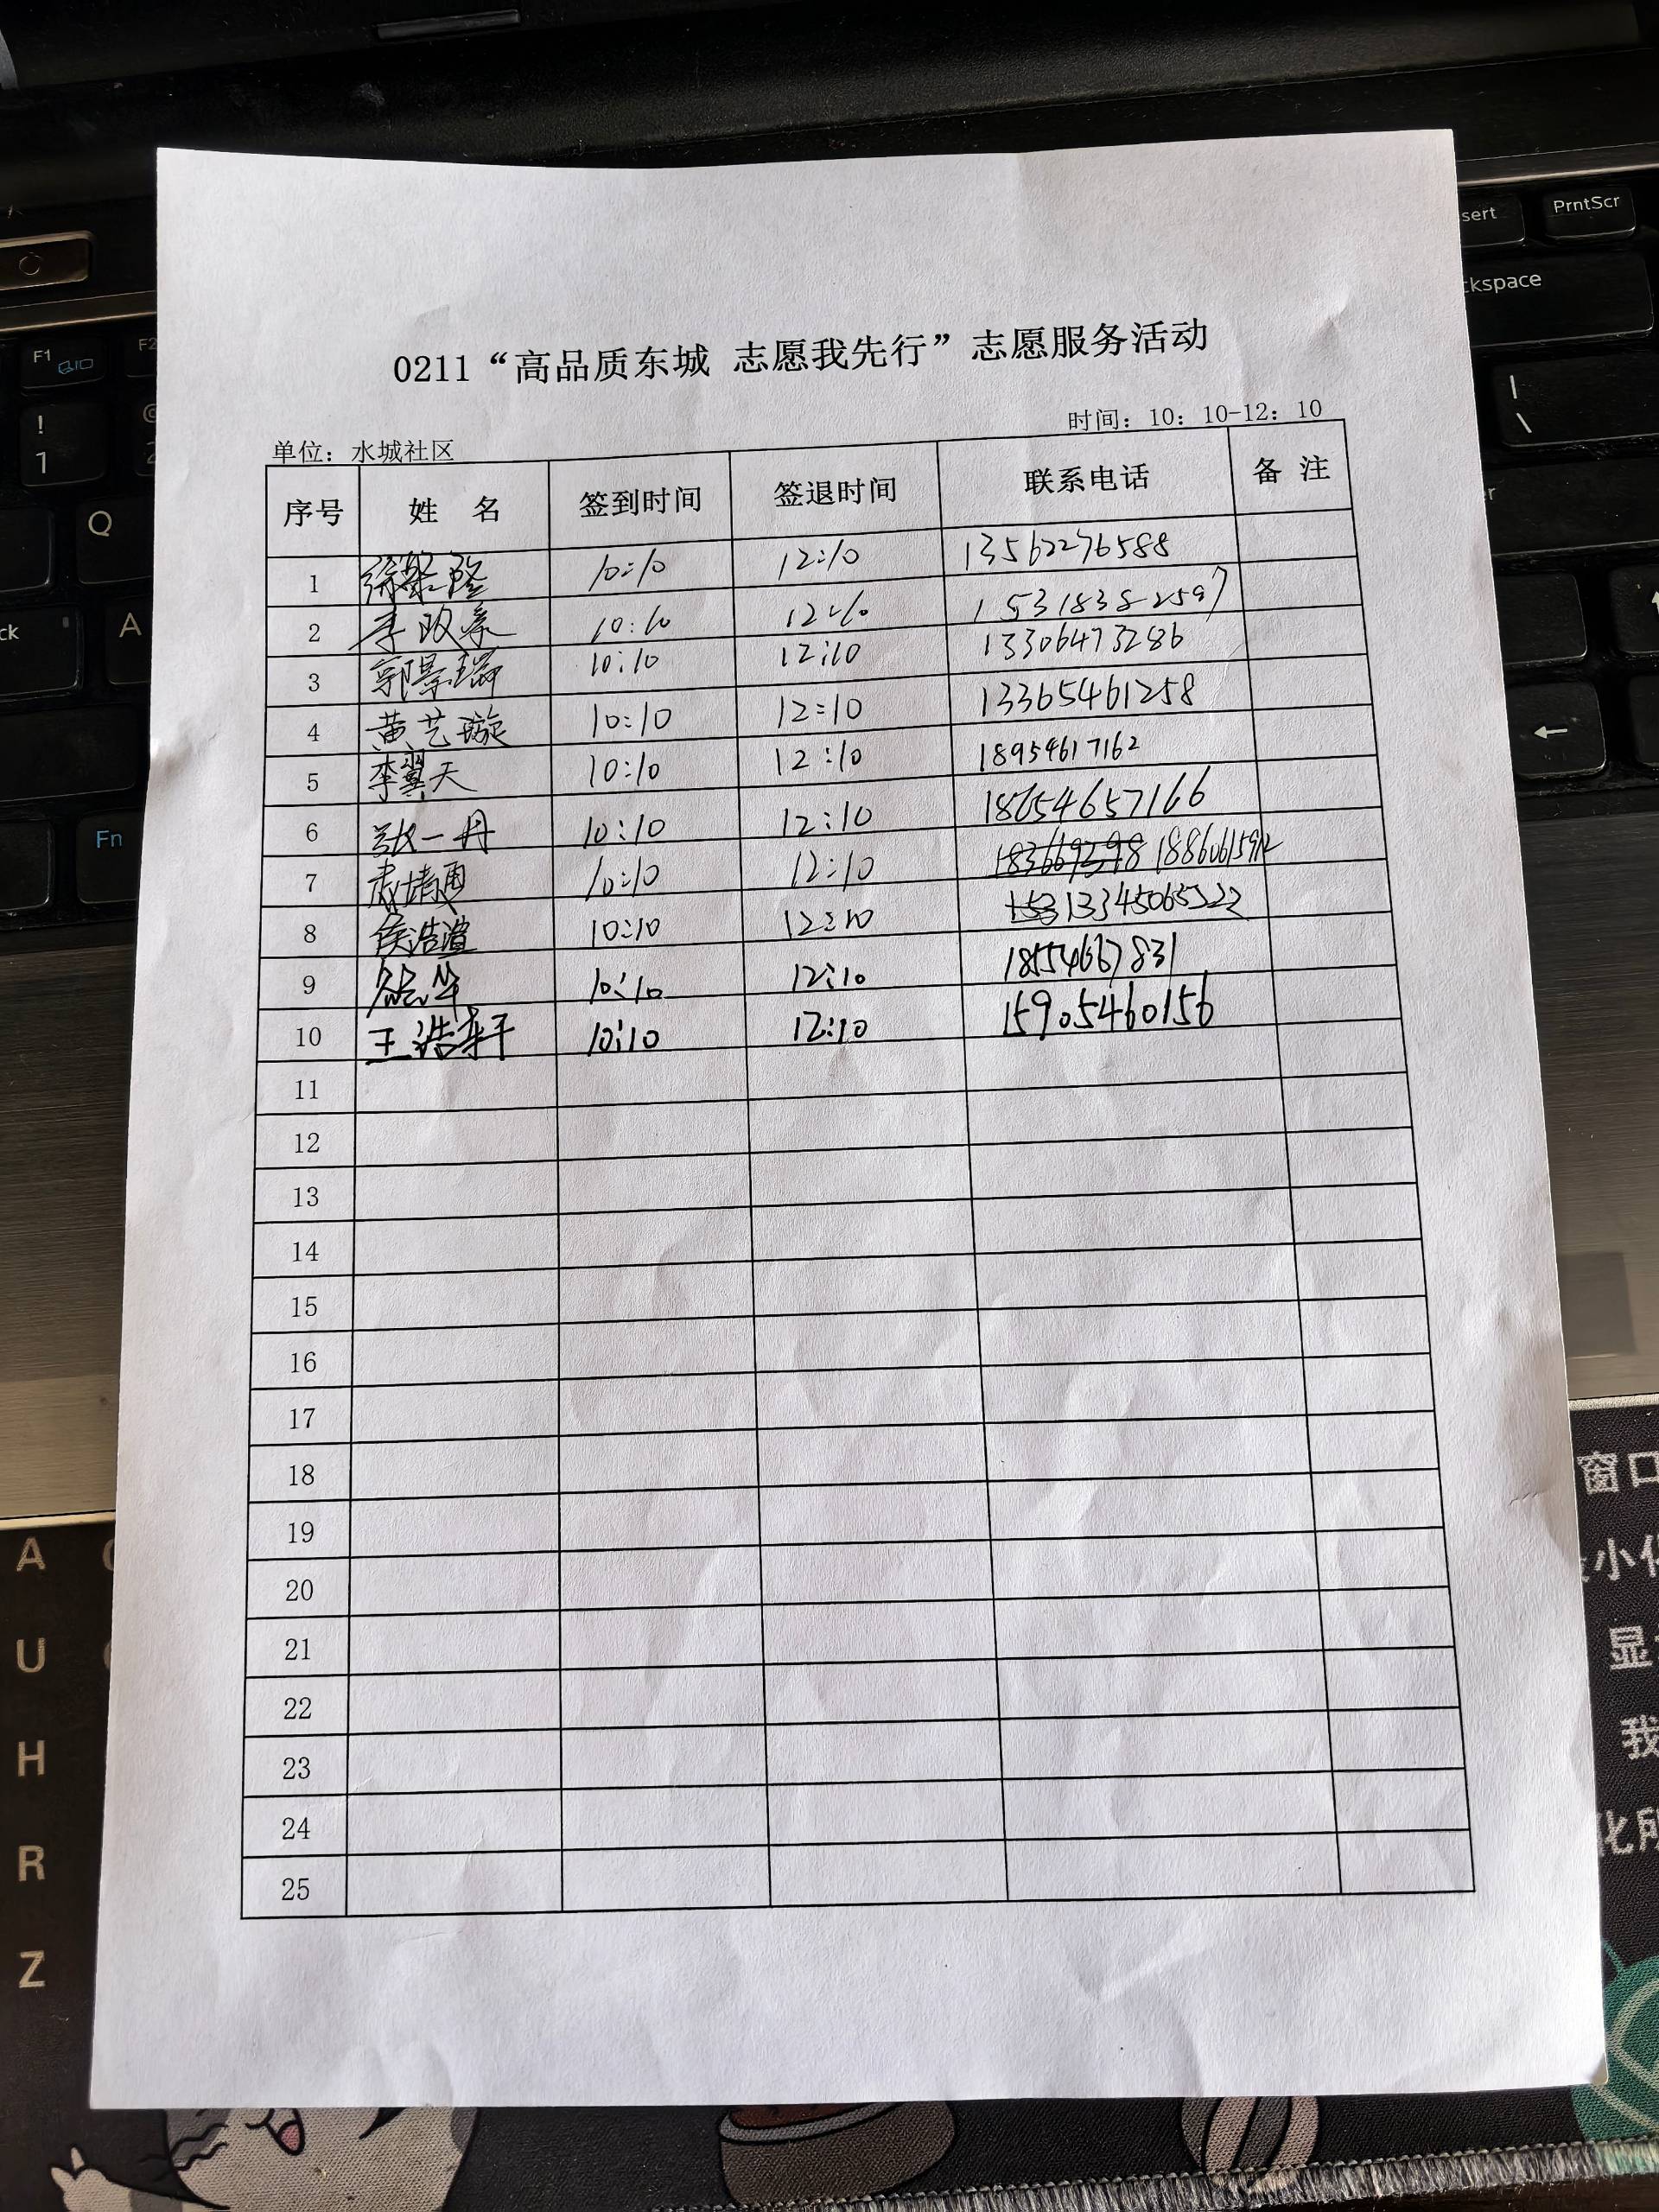 0211“高品质东城 志愿我先行”志愿服务活动
单位：水城社区 时间：10：10-12：10
序号 姓 名 签到时间 签退时间 联系电话 备 注
1 10:10 12:10 13562276588
2 李政豪 10:10 12:10 15318382597
3 郭景瑞 10:10 12:10 13306473286
4 黄艺璇 10:10 12:10 13365461258
5 李翼天 10:10 12:10 18954617162
6 张一丹 10:10 12:10 18654657166
7 10:10 12:10
8 侯浩渲 10:10 12:10 13345065322
9 10:10 12:10 18554667831
10 王浩轩 10:10 12:10 15905460156
11
12
13
14
15
16
17
18
19
20
21
22
23
24
25
PrntScr
F1
F2
!
1
Q
A
Fn
A
U
H
R
Z
窗口
显
我